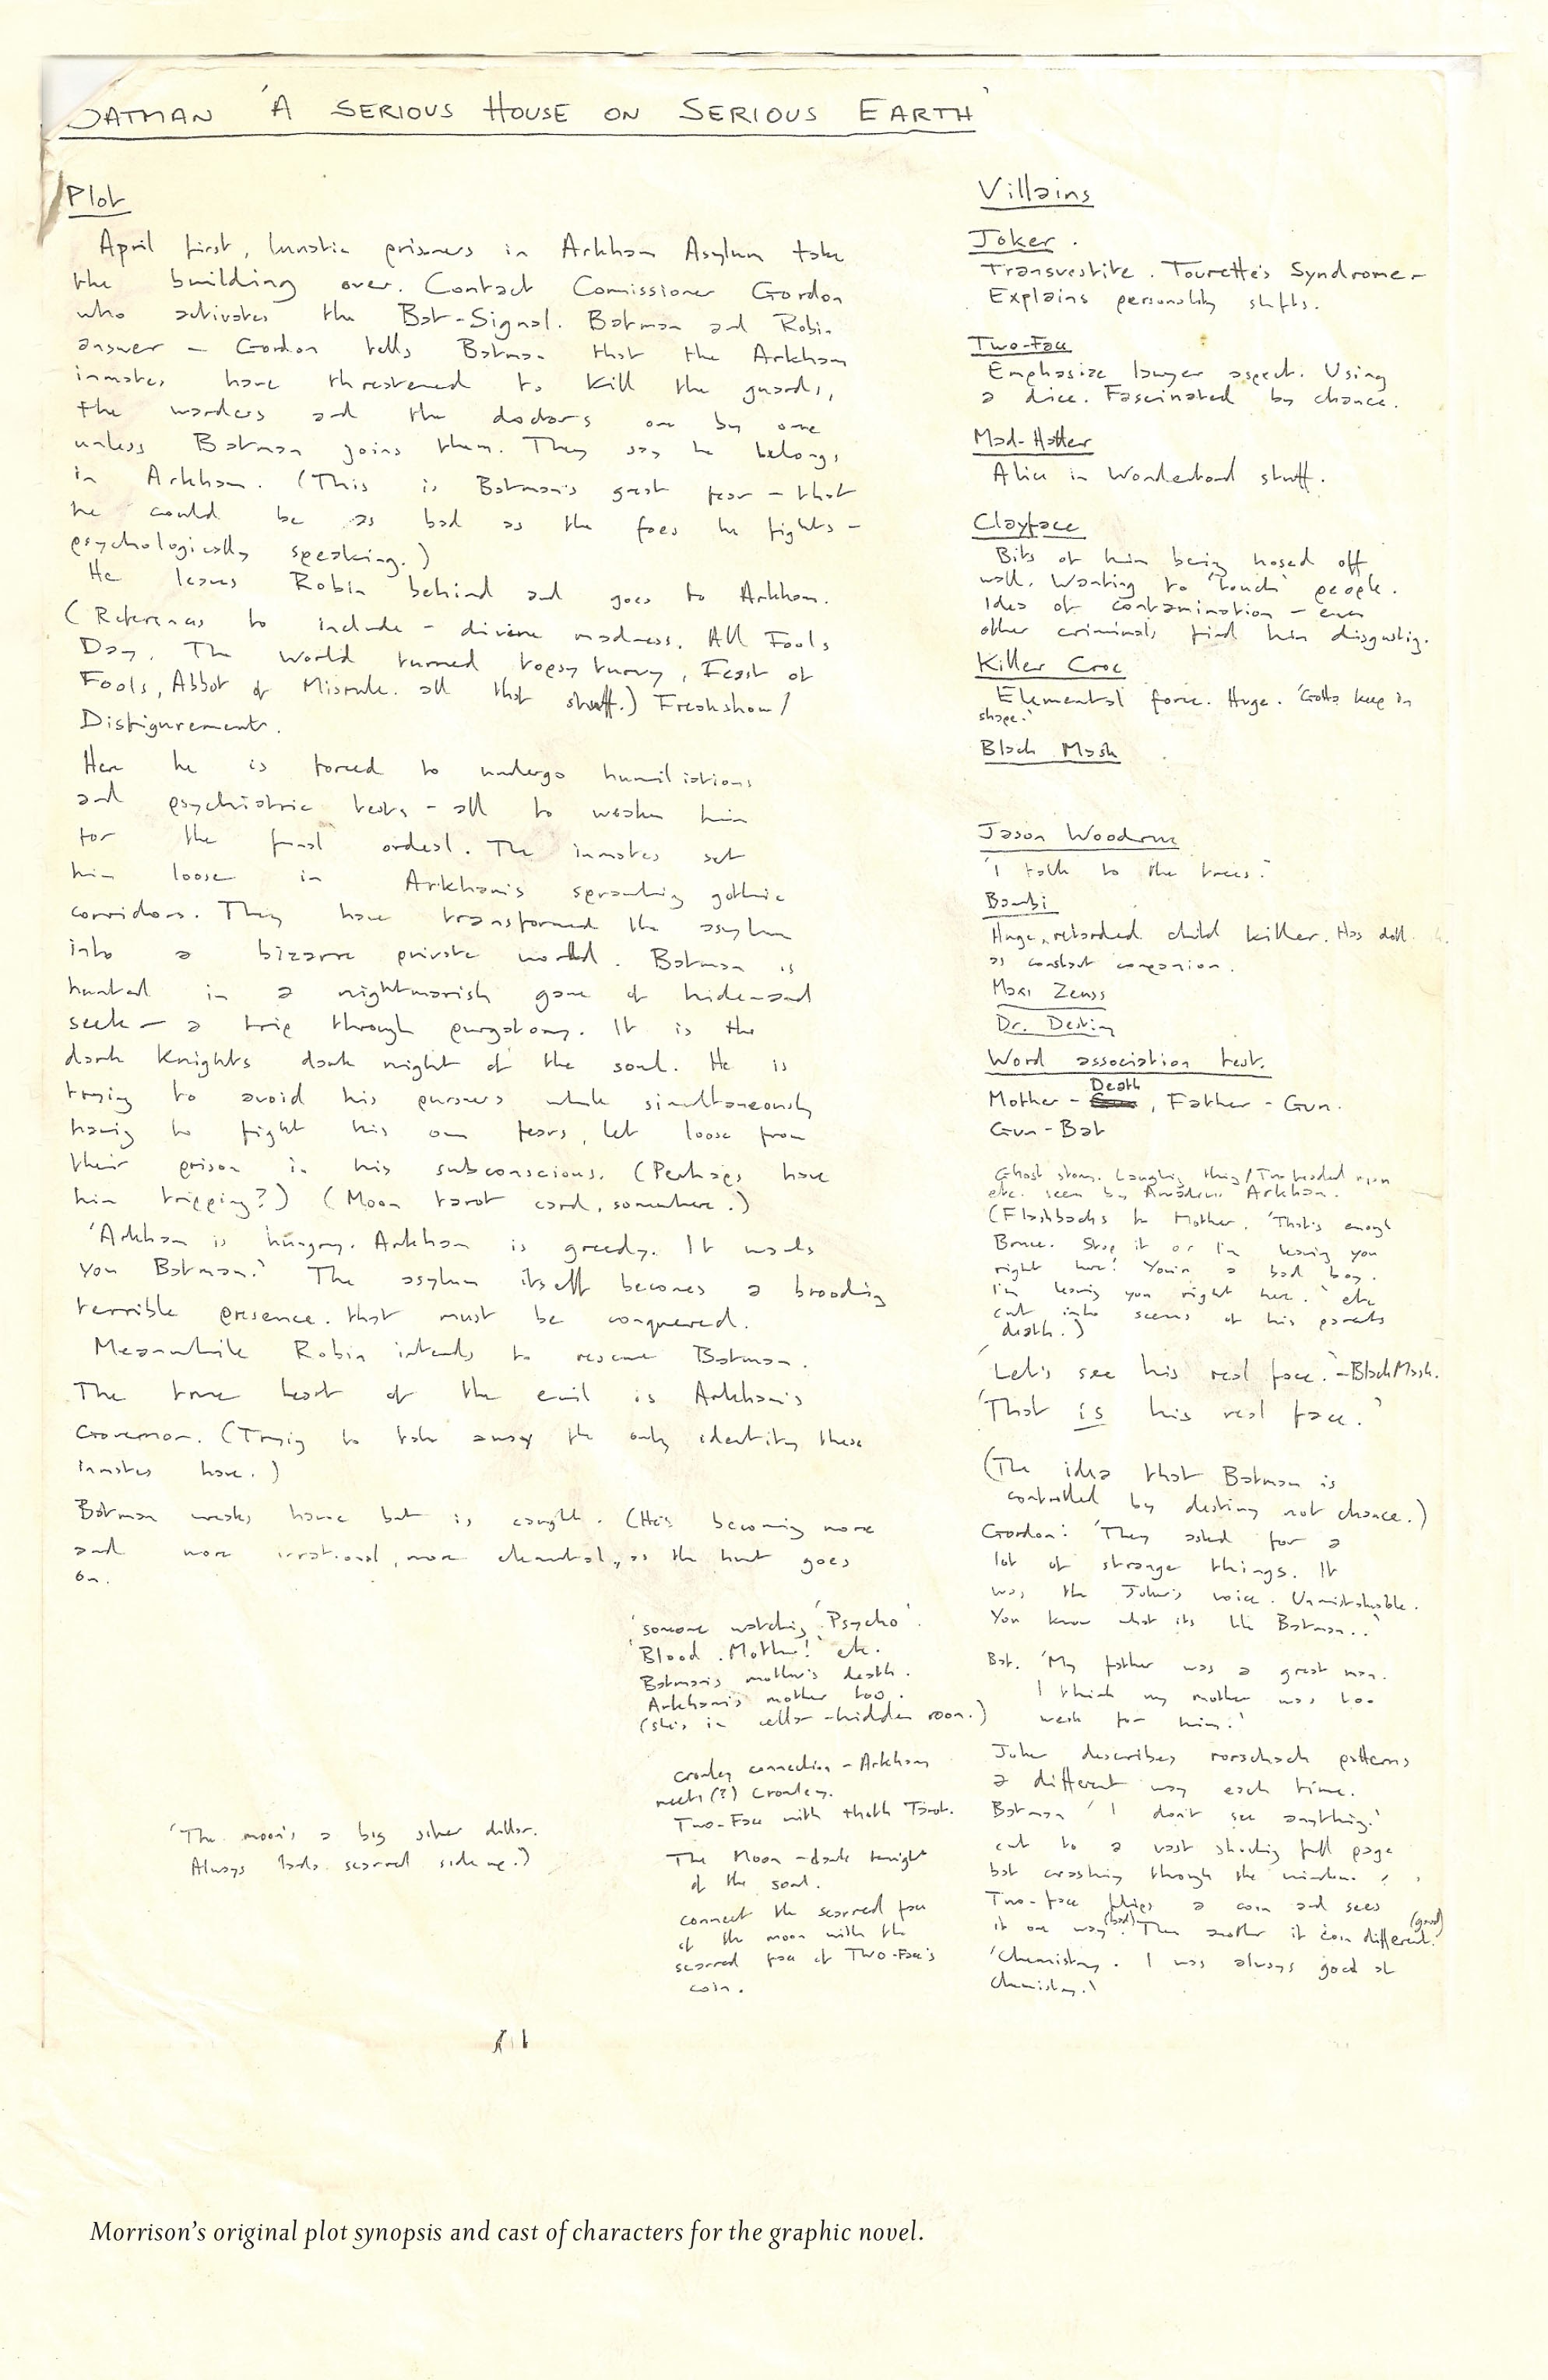 BATMAN 'A SERIOUS HOUSE ON SERIOUS EARTH'
Plot
April first, lunatic prisoners in Arkham Asylum take
the building over. Contact Comissioner Gordon
who activates the Bat-Signal. Batman and Robin
answer – Gordon tells Batman that the Arkham
inmates have threatened to kill the guards,
the warders and the doctors one by one
unless Batman joins them. They say he belongs
in Arkham. (This is Batman's great fear – that
he could be as bad as the foes he fights –
psychologically speaking.)
He leaves Robin behind and goes to Arkham.
(References to include – divine madness. All Fools
Day. The world turned topsy turvy, Feast of
Fools, Abbot of Misrule. all that stuff.) Freakshow/
Disfigurement.
Here he is forced to undergo humiliations
and psychiatric tests – all to weaken him
for the final ordeal. The inmates set
him loose in Arkham's sprawling gothic
corridors. They have transformed the asylum
into a bizarre private world. Batman is
hunted in a nightmarish game of hide-and
seek – a trip through purgatory. It is the
dark knights dark night of the soul. He is
trying to avoid his pursuers while simultaneously
having to fight his own fears, let loose from
their prison in his subconscious. (Perhaps have
him tripping?) (Moon tarot card, somewhere.)
'Arkham is hungry. Arkham is greedy. It wants
you Batman.' The asylum itself becomes a brooding
terrible presence. that must be conquered.
Meanwhile Robin intends to rescue Batman.
The true heart of the evil is Arkham's
Governor. (Trying to take away the only identity these
inmates have.)
Batman wreaks havoc but is caught. (He's becoming more
and more irrational, more elemental, as the hunt goes
on.
'someone watching 'Psycho'.
'Blood. Mother!' etc.
Batman's mother's death.
Arkham's mother too.
(she's in cellar – hidden room.)
Crowley connection – Arkham
meets (?) Crowley.
Two-Face with thoth Tarot.
The Moon – dark knight
of the soul.
connect the scarred face
of the moon with the
scarred face of Two-Face's
coin.
'The moon's a big silver dollar.
Always lands scarred side up.)
Villains
Joker.
Transvestite. Tourette's Syndrome –
Explains personality shifts.
Two-Face
Emphasize lawyer aspect. Using
a dice. Fascinated by chance.
Mad-Hatter
Alice in Wonderland stuff.
Clayface
Bits of him being hosed off
wall. Wanting to 'touch' people.
Idea of contamination – even
other criminals find him disgusting.
Killer Croc
Elemental force. Huge. 'Gotta keep in
shape.'
Black Mask
Jason Woodrue
'I talk to the trees.'
Bambi
Huge, retarded child killer. Has doll
as constant companion.
Maxi Zeuss
Dr. Destiny
Word association test.
Mother – Death, Father – Gun.
Gun – Bat
Ghost story. Laughing thing/Two headed man
etc. seen by Amadeus Arkham.
(Flashbacks to Mother. 'That's enough
Bruce. Stop it or I'm leaving you
right here! You're a bad boy.
I'm leaving you right here.' etc
cut into scenes of his parents
death.)
'Let's see his real face.' – Black Mask.
'That is his real face.'
(The idea that Batman is
controlled by destiny not chance.)
Gordon: 'They asked for a
lot of strange things. It
was the Joker's voice. Unmistakable.
You know what its like Batman..'
Bat. 'My father was a great man.
I think my mother was too
weak for him.'
Joker describes rorschach patterns
a different way each time.
Batman 'I don't see anything.'
cut to a vast shocking full page
bat crashing through the window.
Two-face flips a coin and sees
it one way (bad). Then another if coin different. (good)
'Chemistry. I was always good at
chemistry.'
Morrison's original plot synopsis and cast of characters for the graphic novel.